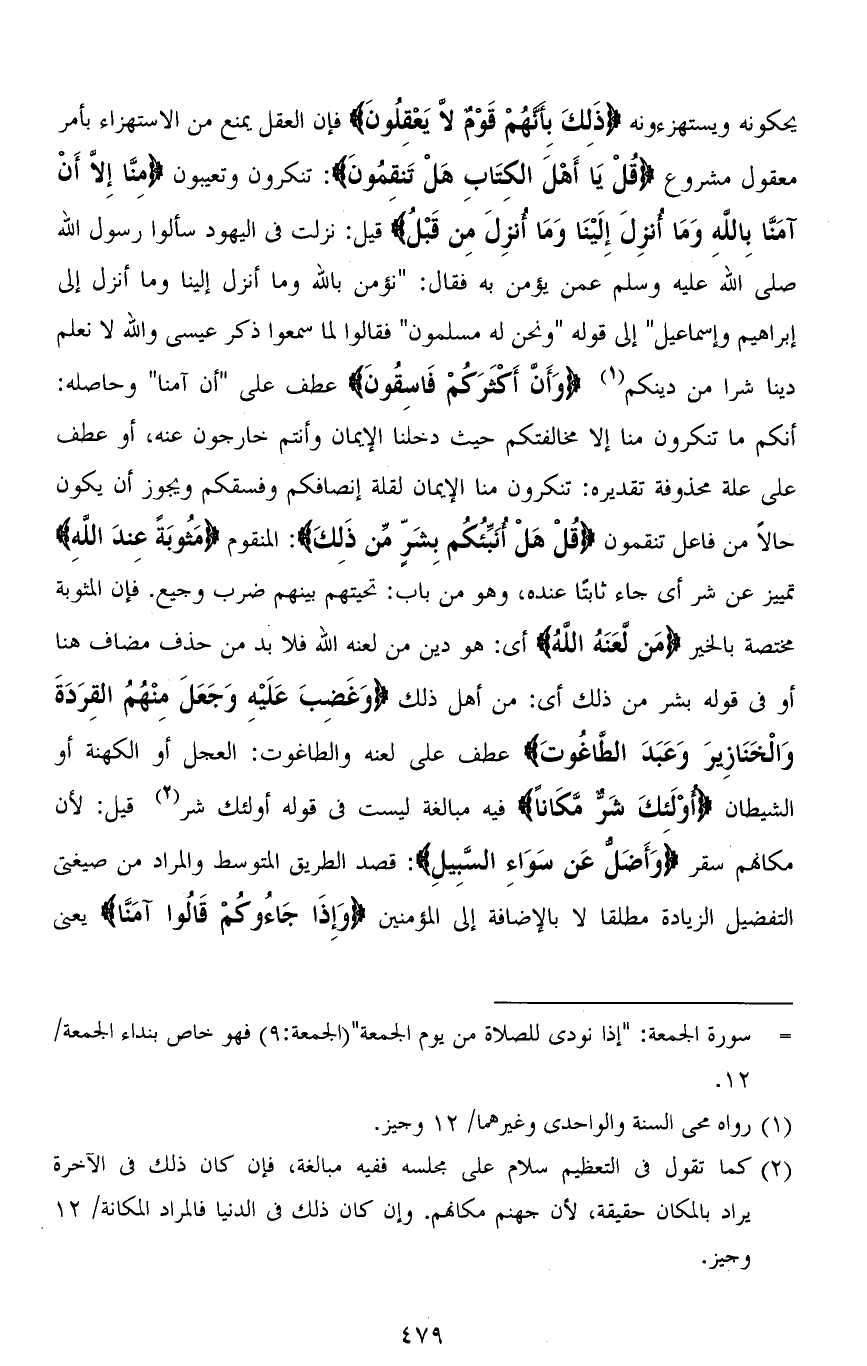 يحكونه ويستهزءونه ﴿ذَلِكَ بِأَنَّهُمْ قَوْمٌ لاَّ يَعْقِلُونَ﴾ فإن العقل يمنع من الاستهزاء بأمر
معقول مشروع ﴿قُلْ يَا أَهْلَ الكِتَابِ هَلْ تَنقِمُونَ﴾: تنكرون وتعيبون ﴿مِنَّا إِلاَّ أَنْ
آمَنَّا بِاللَّهِ وَمَا أُنزِلَ إِلَيْنَا وَمَا أُنزِلَ مِن قَبْلُ﴾ قيل: نزلت فى اليهود سألوا رسول الله
صلى الله عليه وسلم عمن يؤمن به فقال: "نؤمن بالله وما أنزل إلينا وما أنزل إلى
إبراهيم وإسماعيل" إلى قوله "ونحن له مسلمون" فقالوا لما سمعوا ذكر عيسى والله لا نعلم
دينا شرا من دينكم(١) ﴿وَأَنَّ أَكْثَرَكُمْ فَاسِقُونَ﴾ عطف على "أن آمنا" وحاصله:
أنكم ما تنكرون منا إلا مخالفتكم حيث دخلنا الإيمان وأنتم خارجون عنه، أو عطف
على علة محذوفة تقديره: تنكرون منا الإيمان لقلة إنصافكم وفسقكم ويجوز أن يكون
حالاً من فاعل تنقمون ﴿قُلْ هَلْ أُنَبِّئُكُم بِشَرٍّ مِّن ذَلِكَ﴾: المنقوم ﴿مَثُوبَةً عِندَ اللَّهِ﴾
تمييز عن شر أى جاء ثابتًا عنده، وهو من باب: تحيتهم بينهم ضرب وجيع. فإن المثوبة
مختصة بالخير ﴿مَن لَّعَنَهُ اللَّهُ﴾ أى: هو دين من لعنه الله فلا بد من حذف مضاف هنا
أو فى قوله بشر من ذلك أى: من أهل ذلك ﴿وَغَضِبَ عَلَيْهِ وَجَعَلَ مِنْهُمُ القِرَدَةَ
وَالْخَنَازِيرَ وَعَبَدَ الطَّاغُوتَ﴾ عطف على لعنه والطاغوت: العجل أو الكهنة أو
الشيطان ﴿أُوْلَئِكَ شَرٌّ مَّكَاناً﴾ فيه مبالغة ليست فى قوله أولئك شر(٢) قيل: لأن
مكانهم سقر ﴿وَأَضَلُّ عَن سَوَاءِ السَّبِيلِ﴾: قصد الطريق المتوسط والمراد من صيغتى
التفضيل الزيادة مطلقا لا بالإضافة إلى المؤمنين ﴿وَإِذَا جَاءُوكُمْ قَالُوا آمَنَّا﴾ يعنى
= سورة الجمعة: "إذا نودى للصلاة من يوم الجمعة"(الجمعة:٩) فهو خاص بنداء الجمعة/
١٢.
(١) رواه محى السنة والواحدى وغيرهما/ ١٢ وجيز.
(٢) كما تقول فى التعظيم سلام على مجلسه ففيه مبالغة، فإن كان ذلك فى الآخرة
يراد بالمكان حقيقة، لأن جهنم مكانهم. وإن كان ذلك فى الدنيا فالمراد المكانة/ ١٢
وجيز.
٤٧٩